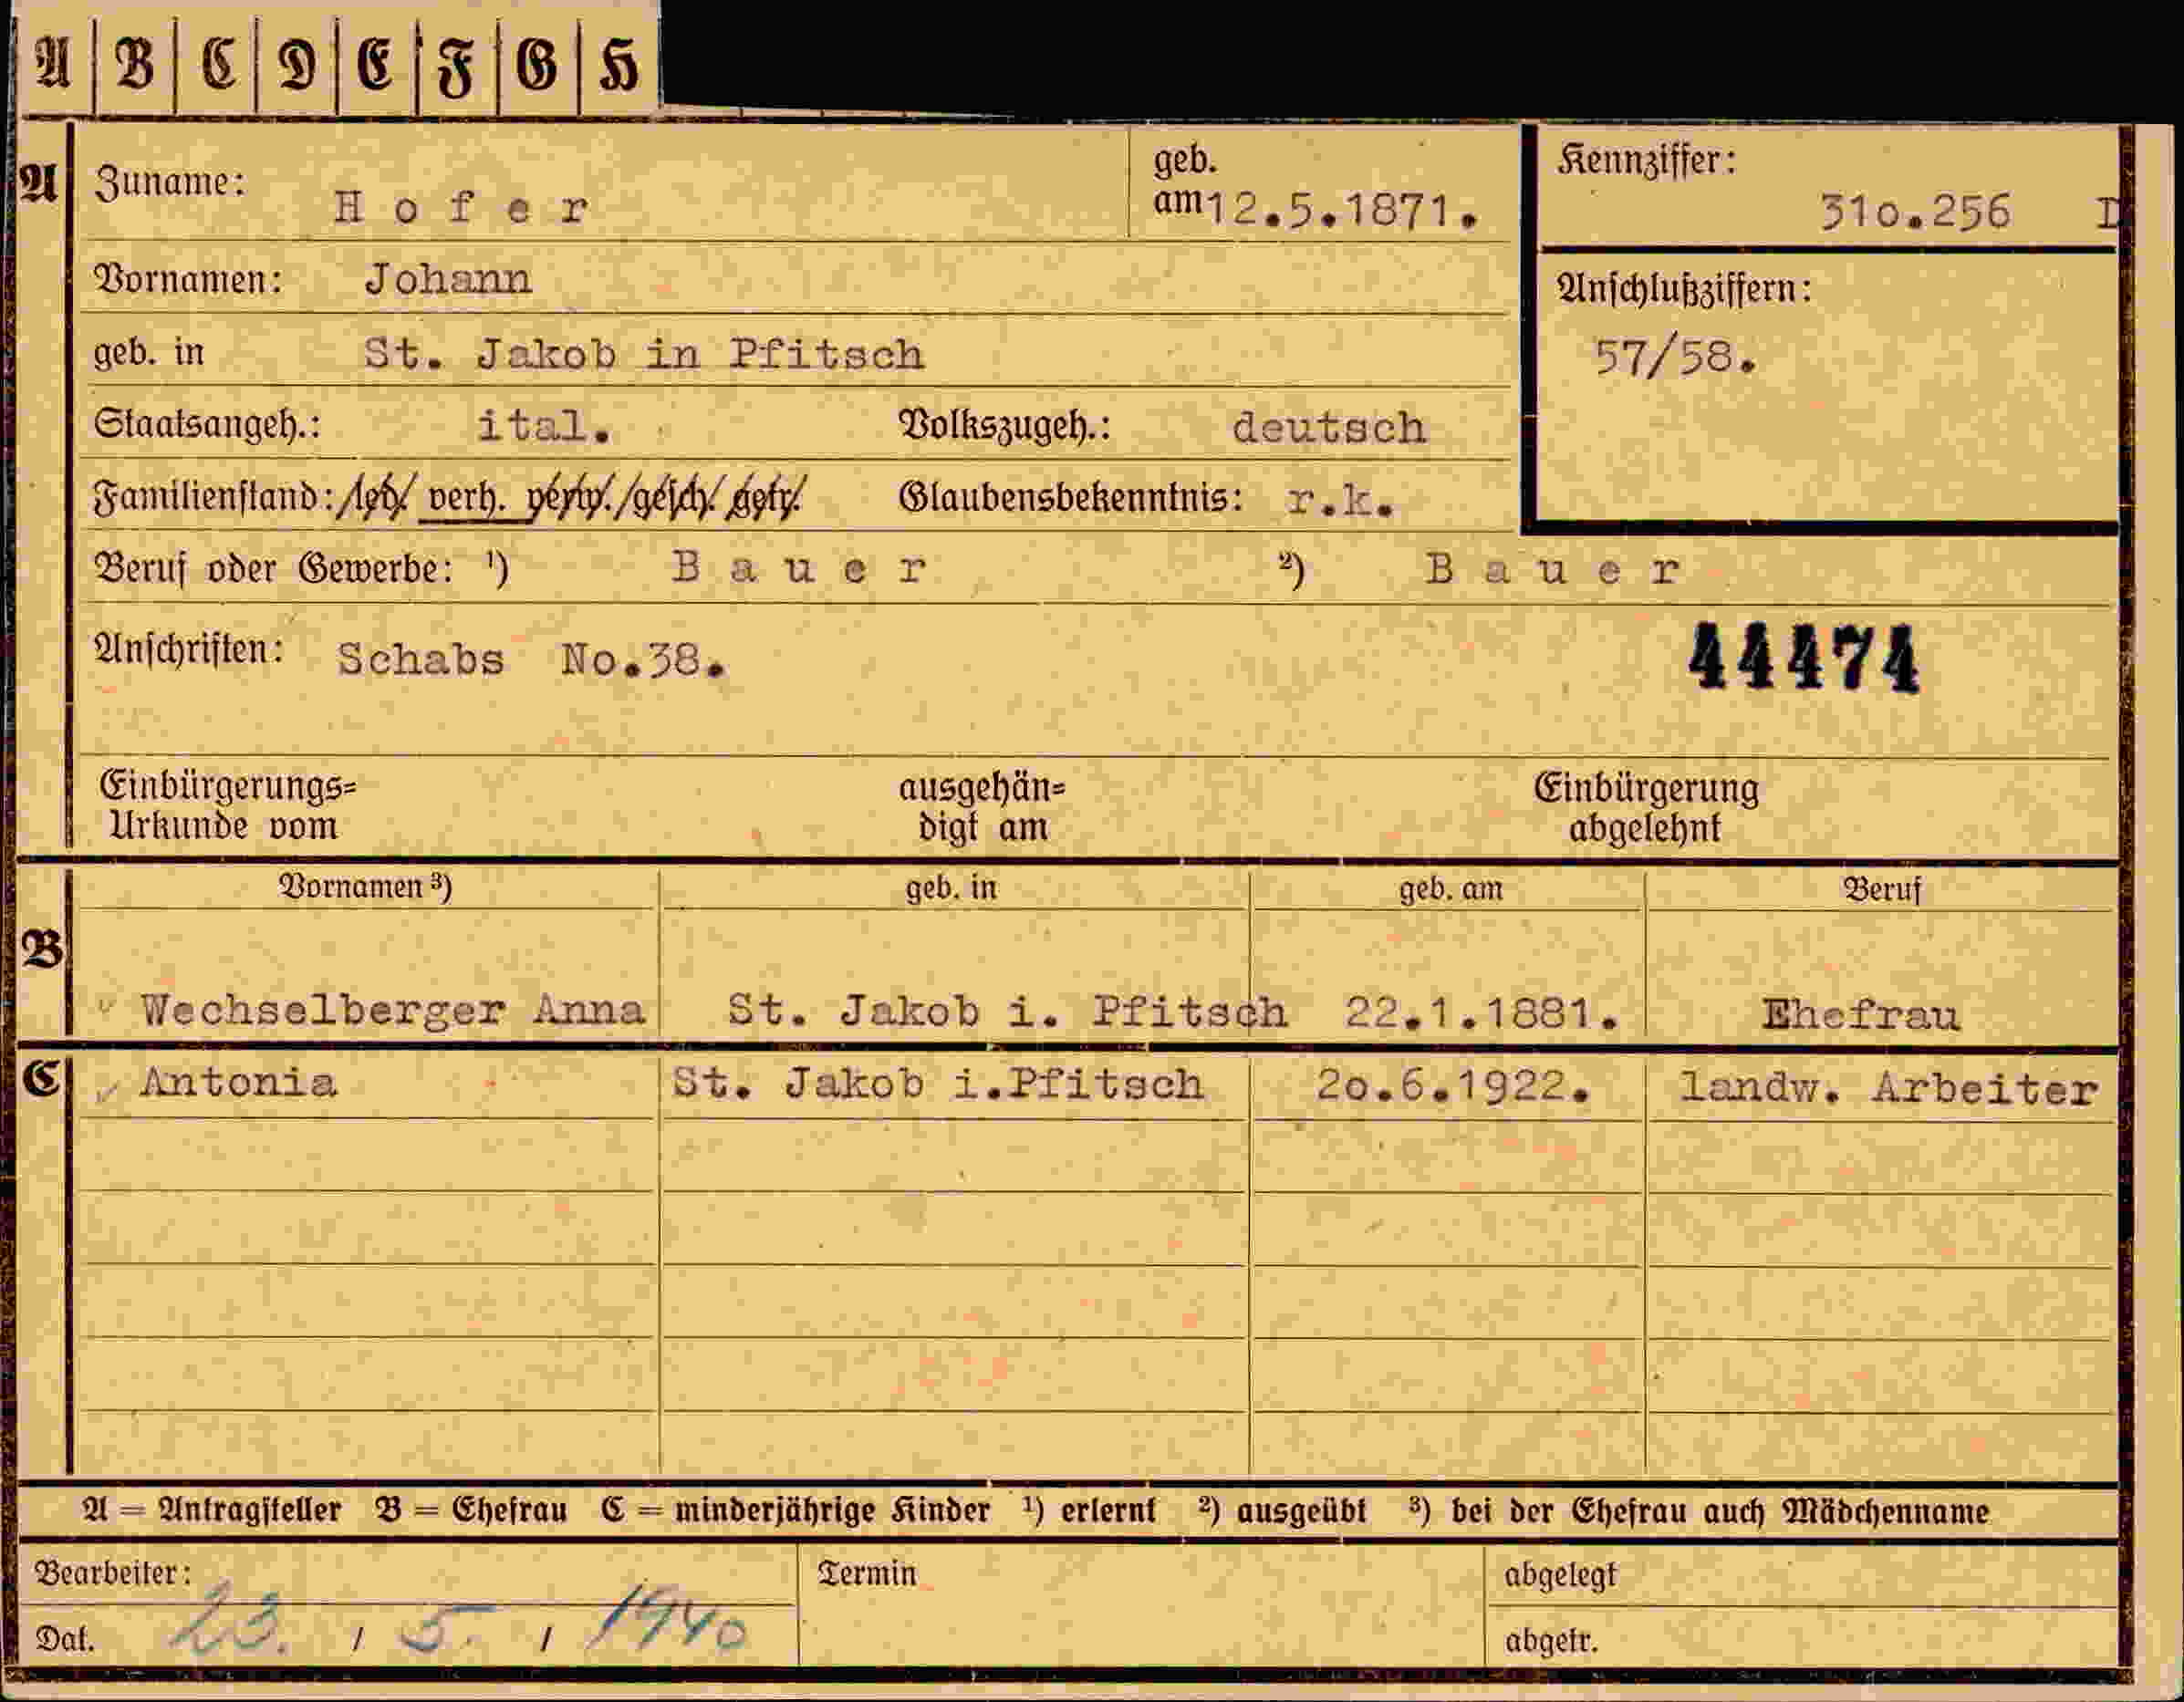 A B C D E F G H
A Zuname: Hofer geb. am 12.5.1871. Kennziffer: 31o.256 D
Vornamen: Johann Anschlußziffern:
geb. in St. Jakob in Pfitsch 57/58.
Staatsangeh.: ital. Volkszugeh.: deutsch
Familienstand: led. verh. verw. gesch. getr. Glaubensbekenntnis: r.k.
Beruf oder Gewerbe: ¹) Bauer ²) Bauer
Anschriften: Schabs No.38. 44474
Einbürgerungs= ausgehän= Einbürgerung
Urkunde vom digt am abgelehnt
Vornamen ³) geb. in geb. am Beruf
B
Wechselberger Anna St. Jakob i. Pfitsch 22.1.1881. Ehefrau
C Antonia St. Jakob i.Pfitsch 2o.6.1922. landw. Arbeiter
A = Antragsteller B = Ehefrau C = minderjährige Kinder ¹) erlernt ²) ausgeübt ³) bei der Ehefrau auch Mädchenname
Bearbeiter: Termin abgelegt
Dat. 23. / 5. / 1940 abgetr.